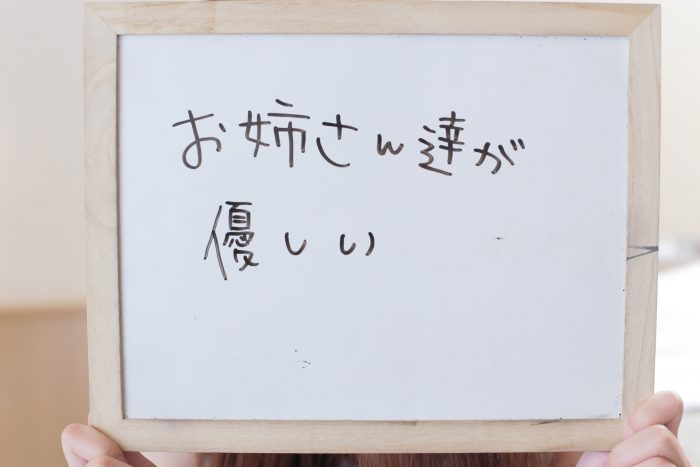 お姉さん達が
優しい